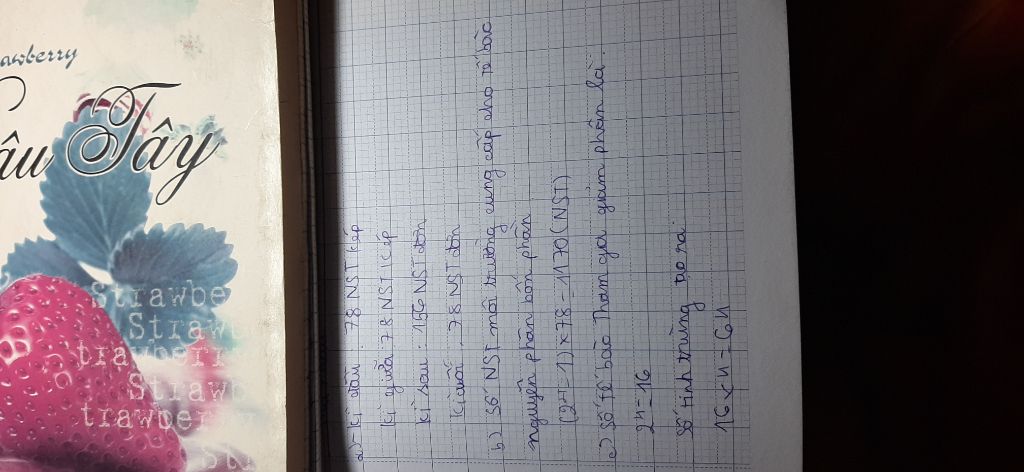 awberry
âu Tây
Strawbe
Straw
trawberr
Straw
trawber
St
a) Kì đầu : 78 NST kép
Kì giữa : 78 NST kép
Kì sau : 156 NST đơn
Kì cuối : 78 NST đơn
b) Số NST môi trường cung cấp cho tế bào
nguyên phân bốn phần
(2⁴ - 1) x 78 = 1170 (NST)
c) Số tế bào tham gia giảm phân là :
2⁴ = 16
Số tinh trùng tạo ra:
16 x 4 = 64